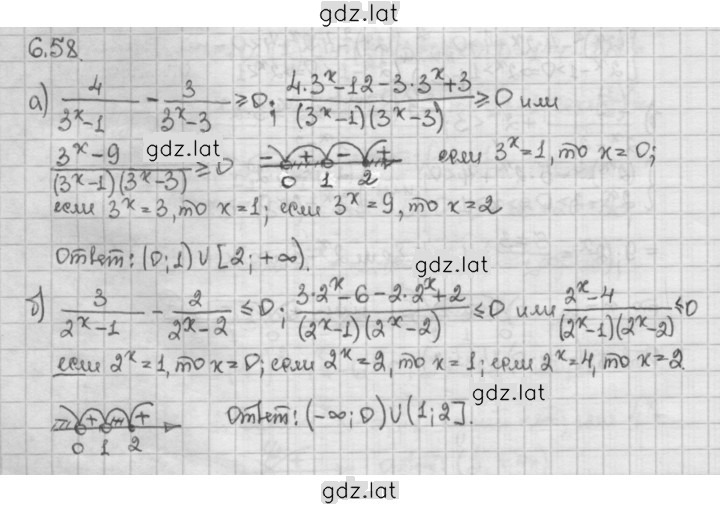 gdz.lat
6.58.
а) 4/(3^x-1) - 3/(3^x-3) ≥ 0; (4·3^x-12-3·3^x+3)/((3^x-1)(3^x-3)) ≥ 0 или
gdz.lat
(3^x-9)/((3^x-1)(3^x-3)) ≥ 0 - + - + 0 1 2 если 3^x=1, то x=0;
если 3^x=3, то x=1; если 3^x=9, то x=2
Ответ: (0;1)∪[2;+∞).
gdz.lat
б) 3/(2^x-1) - 2/(2^x-2) ≤ 0; (3·2^x-6-2·2^x+2)/((2^x-1)(2^x-2)) ≤ 0 или (2^x-4)/((2^x-1)(2^x-2)) ≤ 0
если 2^x=1, то x=0; если 2^x=2, то x=1; если 2^x=4, то x=2
gdz.lat
+ + 0 1 2 Ответ: (-∞;0)∪(1;2].
gdz.lat